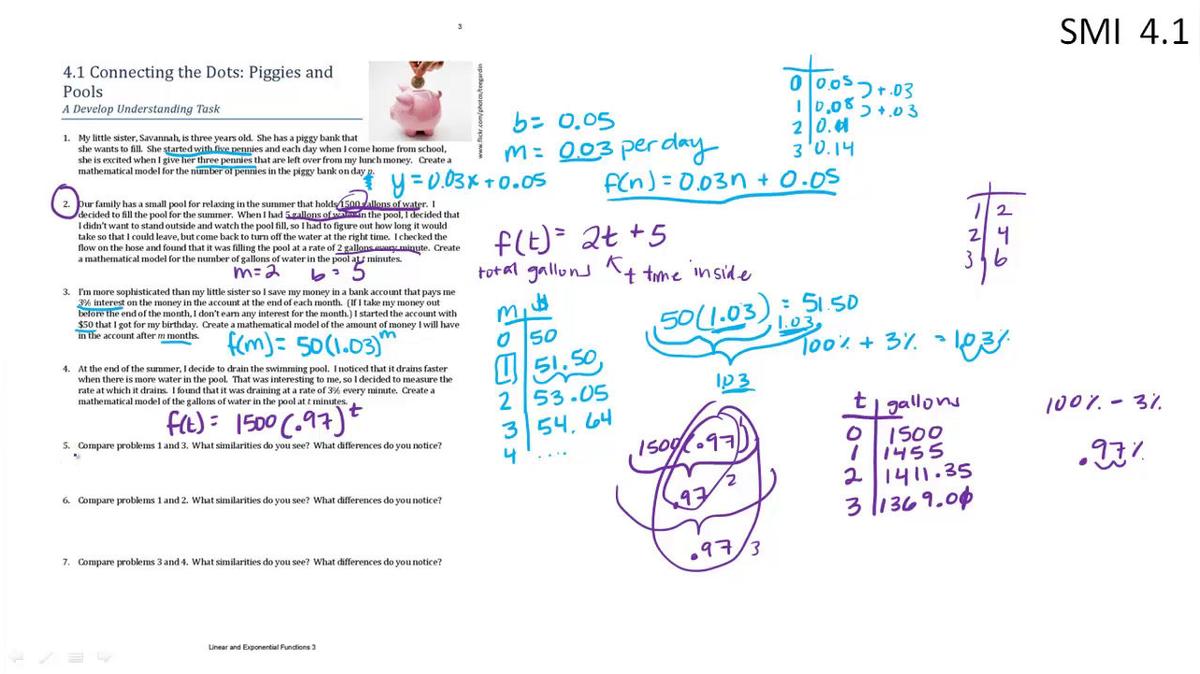 3
SMI 4.1
4.1 Connecting the Dots: Piggies and
Pools
A Develop Understanding Task
www.flickr.com/photos/teegardin
1. My little sister, Savannah, is three years old. She has a piggy bank that
she wants to fill. She started with five pennies and each day when I come home from school,
she is excited when I give her three pennies that are left over from my lunch money. Create a
mathematical model for the number of pennies in the piggy bank on day n.
y = 0.03x + 0.05
b = 0.05
m = 0.03 per day
f(n) = 0.03n + 0.05
0 0.05
1 0.08
2 0.11
3 0.14
+.03
+.03
2. Our family has a small pool for relaxing in the summer that holds 1500 gallons of water. I
decided to fill the pool for the summer. When I had 5 gallons of water in the pool, I decided that
I didn't want to stand outside and watch the pool fill, so I had to figure out how long it would
take so that I could leave, but come back to turn off the water at the right time. I checked the
flow on the hose and found that it was filling the pool at a rate of 2 gallons every minute. Create
a mathematical model for the number of gallons of water in the pool at t minutes.
m=2 b = 5
f(t) = 2t + 5
total gallons t time inside
1 2
2 4
3 6
3. I'm more sophisticated than my little sister so I save my money in a bank account that pays me
3% interest on the money in the account at the end of each month. (If I take my money out
before the end of the month, I don't earn any interest for the month.) I started the account with
$50 that I got for my birthday. Create a mathematical model of the amount of money I will have
in the account after m months.
f(m) = 50(1.03)^m
m $
0 50
1 51.50
2 53.05
3 54.64
4 ....
50(1.03) = 51.50
1.03
1.03
100% + 3% = 103%
4. At the end of the summer, I decide to drain the swimming pool. I noticed that it drains faster
when there is more water in the pool. That was interesting to me, so I decided to measure the
rate at which it drains. I found that it was draining at a rate of 3% every minute. Create a
mathematical model of the gallons of water in the pool at t minutes.
f(t) = 1500(.97)^t
1500(.97)
.97 2
.97 3
t gallons
0 1500
1 1455
2 1411.35
3 1369.00
100% - 3%
.97%
5. Compare problems 1 and 3. What similarities do you see? What differences do you notice?
6. Compare problems 1 and 2. What similarities do you see? What differences do you notice?
7. Compare problems 3 and 4. What similarities do you see? What differences do you notice?
Linear and Exponential Functions 3